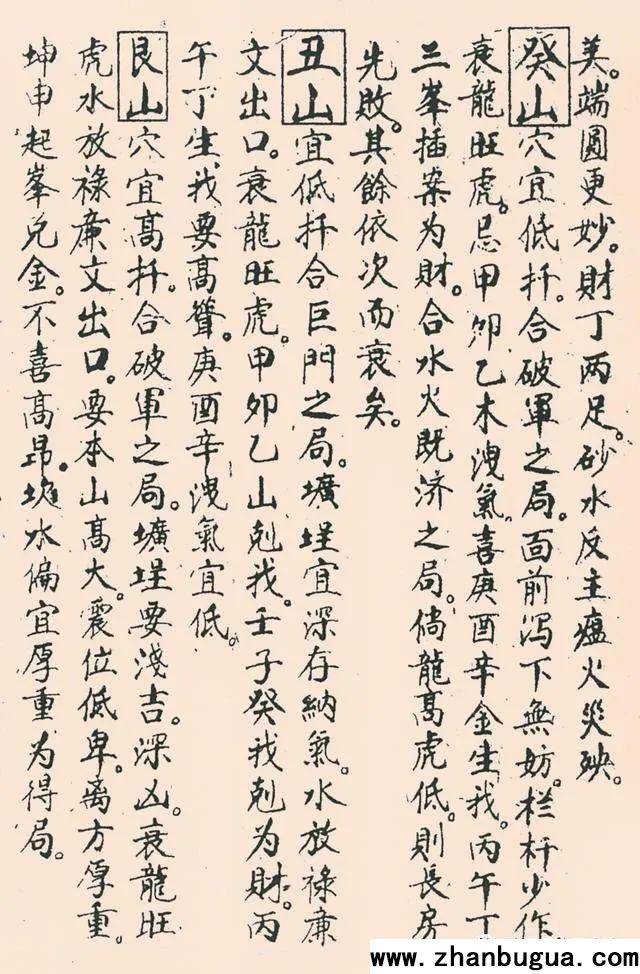 美。端圓更妙。財丁两足。砂水反主瘟火災殃。
癸山穴宜低扦。合破軍之局。面前瀉下無妨。栏杆少作。
衰龍旺虎。忌甲卯乙木洩氣。喜庚酉辛金生我。丙午丁
三峯插案为財。合水火既济之局。倘龍高虎低。則長房
先敗。其餘依次而衰矣。
丑山宜低扦合巨門之局。壙埕宜深存納氣。水放禄廉
文出口。衰龍旺虎。甲卯乙山剋我。壬子癸我剋为財。丙
午丁生我要高聳。庚酉辛洩氣宜低。
艮山穴宜高扦。合破軍之局。壙埕要淺吉。深凶。衰龍旺
虎水放禄廉文出口。要本山高大。震位低卑。离方厚重。
坤申起峯兑金。不喜高昂。坎水偏宜厚重为得局。
www.zhanbugua.com